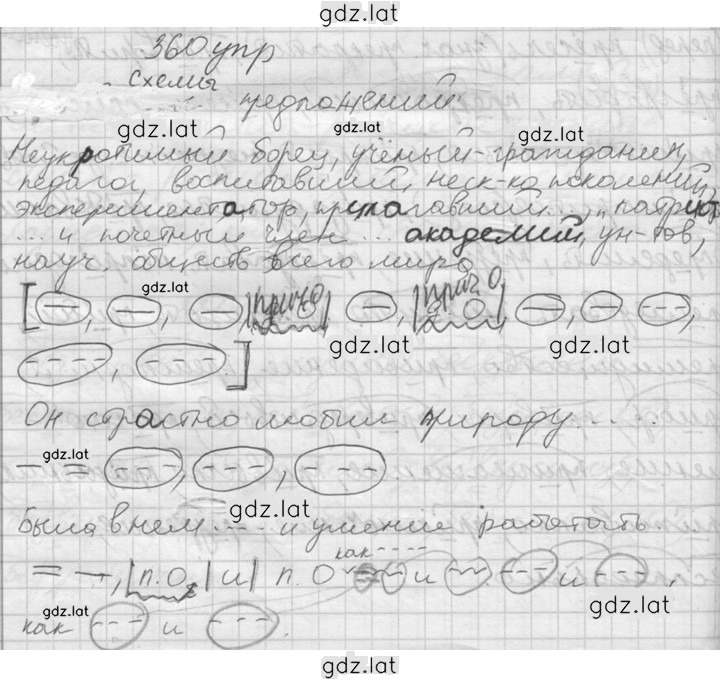 gdz.lat
360 упр
схемы
предложений
gdz.lat gdz.lat gdz.lat
Неукротимый борец, учёный-гражданин,
педагог, воспитавший неск-ко поколений,
экспериментатор, пр ... патриот
... и почетный член ... академий, ун-тов,
науч. обществ всего мира
gdz.lat
[ —, —, —, |прич О|, —, |прич О|, —, —, - - -,
gdz.lat gdz.lat
- - - -, - - - ]
Он страстно любил природу ... .
gdz.lat
— = - - -, - - -, - - -
gdz.lat
Была в нем ... и умение работать.
как - - - -
= —, |п. О,| и| п. О и и - - -,
gdz.lat gdz.lat
как - - - и - - - .
gdz.lat